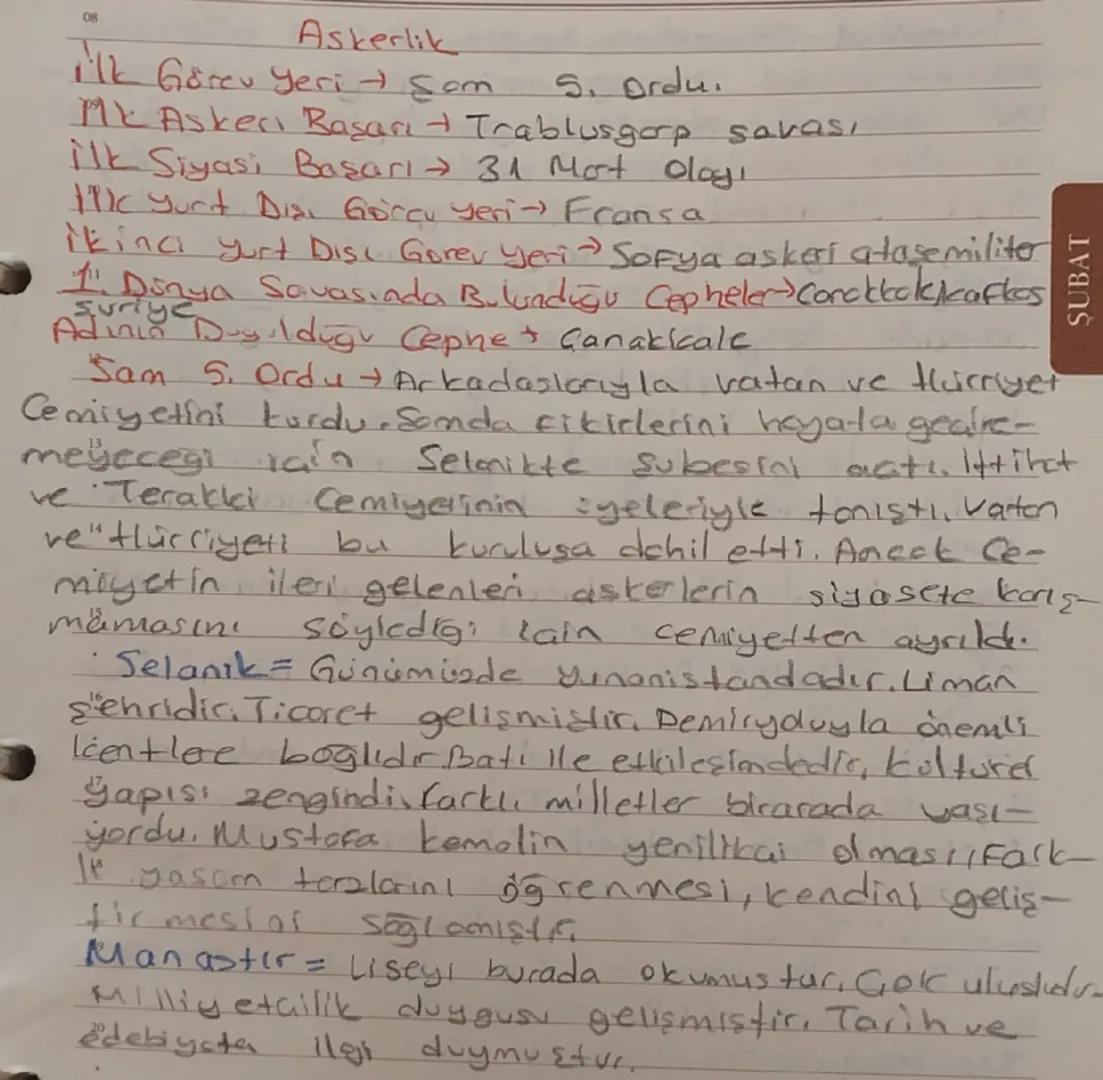 08
Askerlik
İlk Görev Yeri → Şam 5. Ordu.
İlk Askeri Başarı → Trablusgarp savaşı
İlk Siyasi Başarı → 31 Mart Olayı
İlk Yurt Dışı Görev yeri → Fransa
İkinci yurt Dışı Görev yeri → Sofya askeri ataşemiliter
1. Dünya Savaşında Bulunduğu Cepheler → Çanakkale, Kafkas
Suriye
Adının Duyulduğu Cephe → Çanakkale
Şam 5. Ordu → Arkadaşlarıyla vatan ve Hürriyet
Cemiyetini kurdu. Şamda fikirlerini hayata geçire-
meyeceği için Selanikte Şubesini açtı. İttihat
ve Terakki Cemiyetinin üyeleriyle tanıştı. Vatan
ve Hürriyeti bu kuruluşa dahil etti. Ancak Ce-
miyetin ileri gelenleri askerlerin siyasete karış-
mamasını söylediği için cemiyetten ayrıldı.
Selanik = Günümüzde Yunanistandadır. Liman
şehridir. Ticaret gelişmiştir. Demiryoluyla önemli
kentlere bağlıdır. Batı ile etkileşimdedir, kültürel
yapısı zengindi. farklı milletler birarada yaşı-
yordu. Mustafa kemalin yenilikçi olması, Fark-
lı yaşam tarzlarını öğrenmesi, kendini geliş-
tirmesini sağlamıştır.
Manastır = Liseyi burada okumuştur. Çok ulusludur.
Milliyetçilik duygusu gelişmiştir. Tarih ve
edebiyata ilgi duymuştur.
ŞUBAT